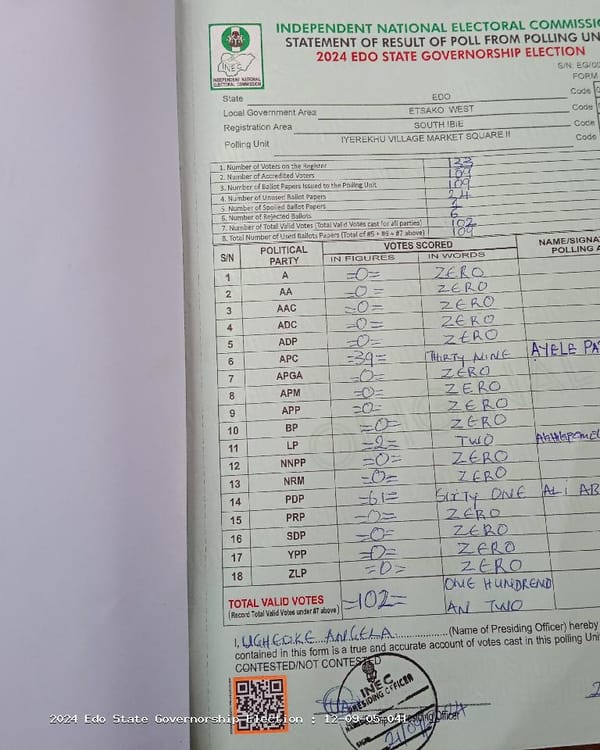 INDEPENDENT NATIONAL ELECTORAL COMMISSIO
STATEMENT OF RESULT OF POLL FROM POLLING UN
2024 EDO STATE GOVERNORSHIP ELECTION
INEC
INDEPENDENT NATIONAL
ELECTORAL COMMISSION
S/N: EG/
FORM
State EDO Code
Local Government Area ETSAKO WEST Code
Registration Area SOUTH IBIE Code
Polling Unit IYEREKHU VILLAGE MARKET SQUARE II Code
1. Number of Voters on the Register 133
2. Number of Accredited Voters 109
3. Number of Ballot Papers Issued to the Polling Unit
4. Number of Unused Ballot Papers 24
5. Number of Spoiled Ballot Papers 1
6. Number of Rejected Ballots 6
7. Number of Total Valid Votes (Total Valid Votes cast for all parties) 102
8. Total Number of Used Ballots Papers (Total of #5 + #6 + #7 above) 109
S/N POLITICAL PARTY VOTES SCORED NAME/SIGNA
IN FIGURES IN WORDS POLLING A
1 A =0= ZERO
2 AA =0= ZERO
3 AAC =0= ZERO
4 ADC =0= ZERO
5 ADP =0= ZERO
6 APC =39= THIRTY NINE AYELE PA
7 APGA =0= ZERO
8 APM =0= ZERO
9 APP =0= ZERO
10 BP =0= ZERO
11 LP =2= TWO
12 NNPP =0= ZERO
13 NRM =0= ZERO
14 PDP =61= SIXTY ONE ALI AB
15 PRP =0= ZERO
16 SDP =0= ZERO
17 YPP =0= ZERO
18 ZLP =0= ZERO
TOTAL VALID VOTES =102= ONE HUNDREND
(Record Total Valid Votes under #7 above) AN TWO
I, UGHEOKE ANGELA (Name of Presiding Officer) hereby
contained in this form is a true and accurate account of votes cast in this polling Uni
CONTESTED/NOT CONTESTED
INEC
PRESIDING OFFICER
Presiding Officer
2024 Edo State Governorship Election : 12-09-05-041